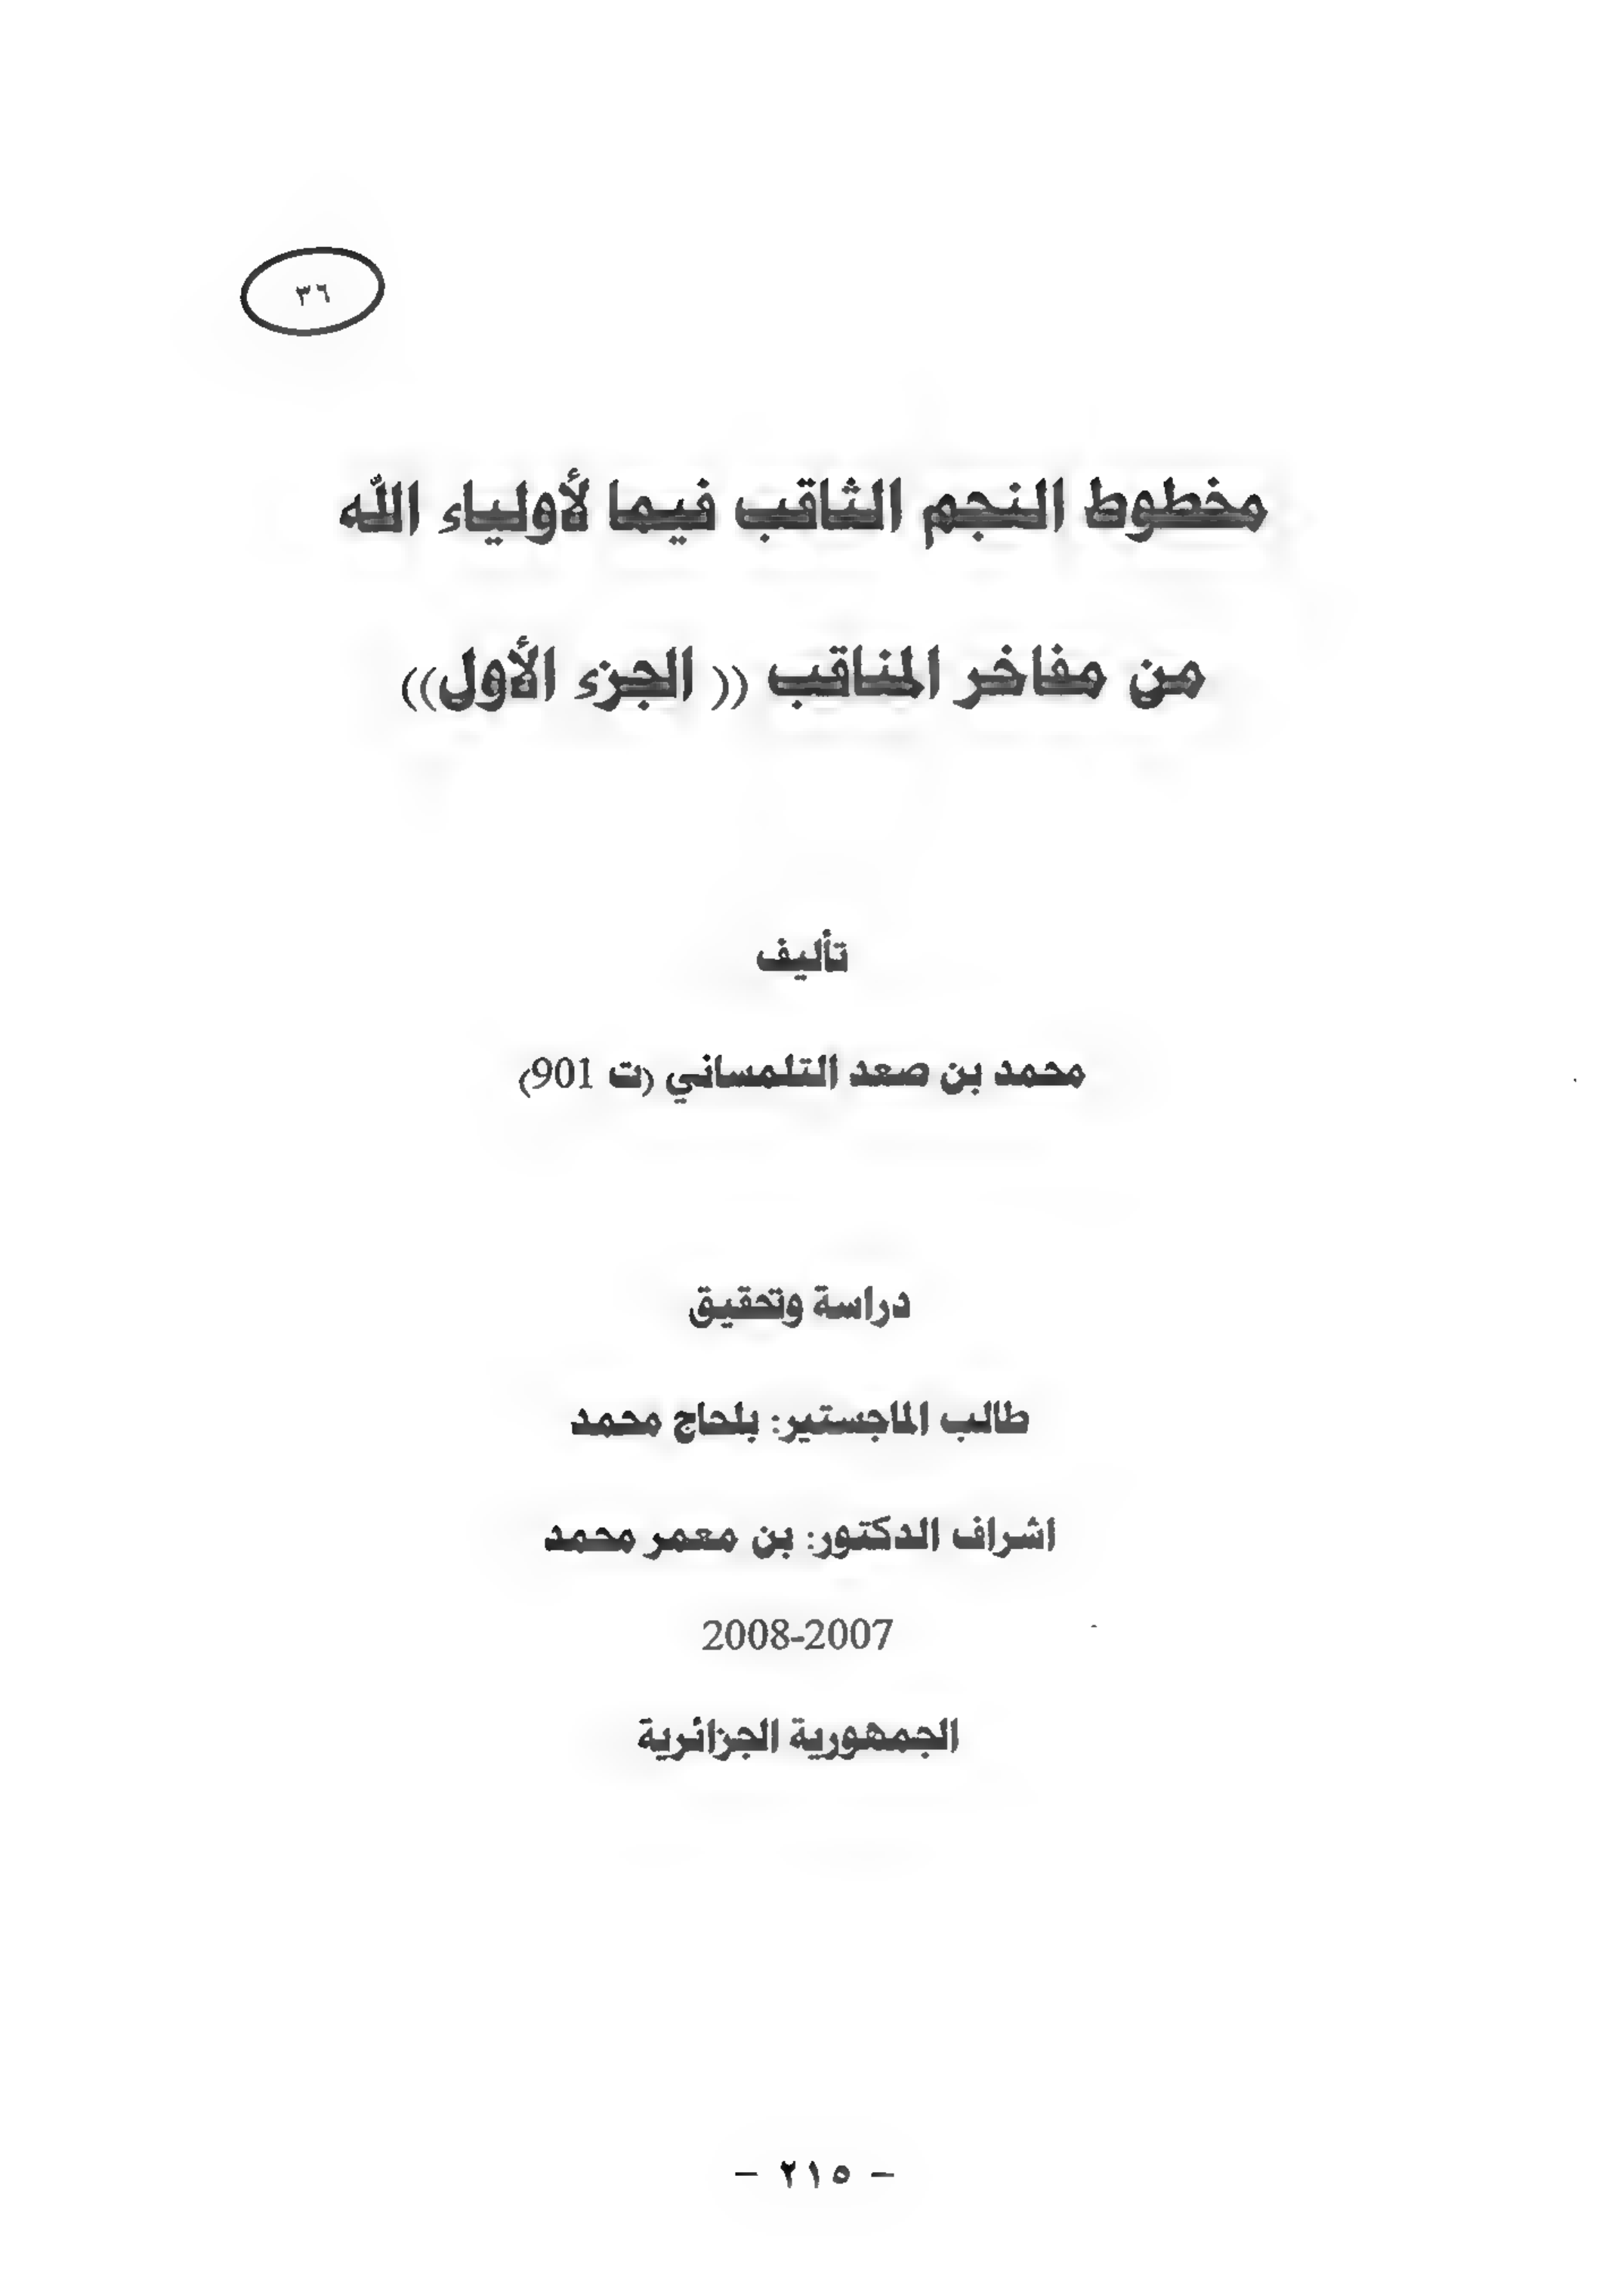 ٣٦
مخطوط النجم الثاقب فيما لأولياء الله
من مفاخر المناقب (( الجزء الأول))
تأليف
محمد بن صعد التلمساني (ت 901)
دراسة وتحقيق
طالب الماجستير: بلحاج محمد
اشراف الدكتور: بن معمر محمد
2008-2007
الجمهورية الجزائرية
- ٢١٥ -